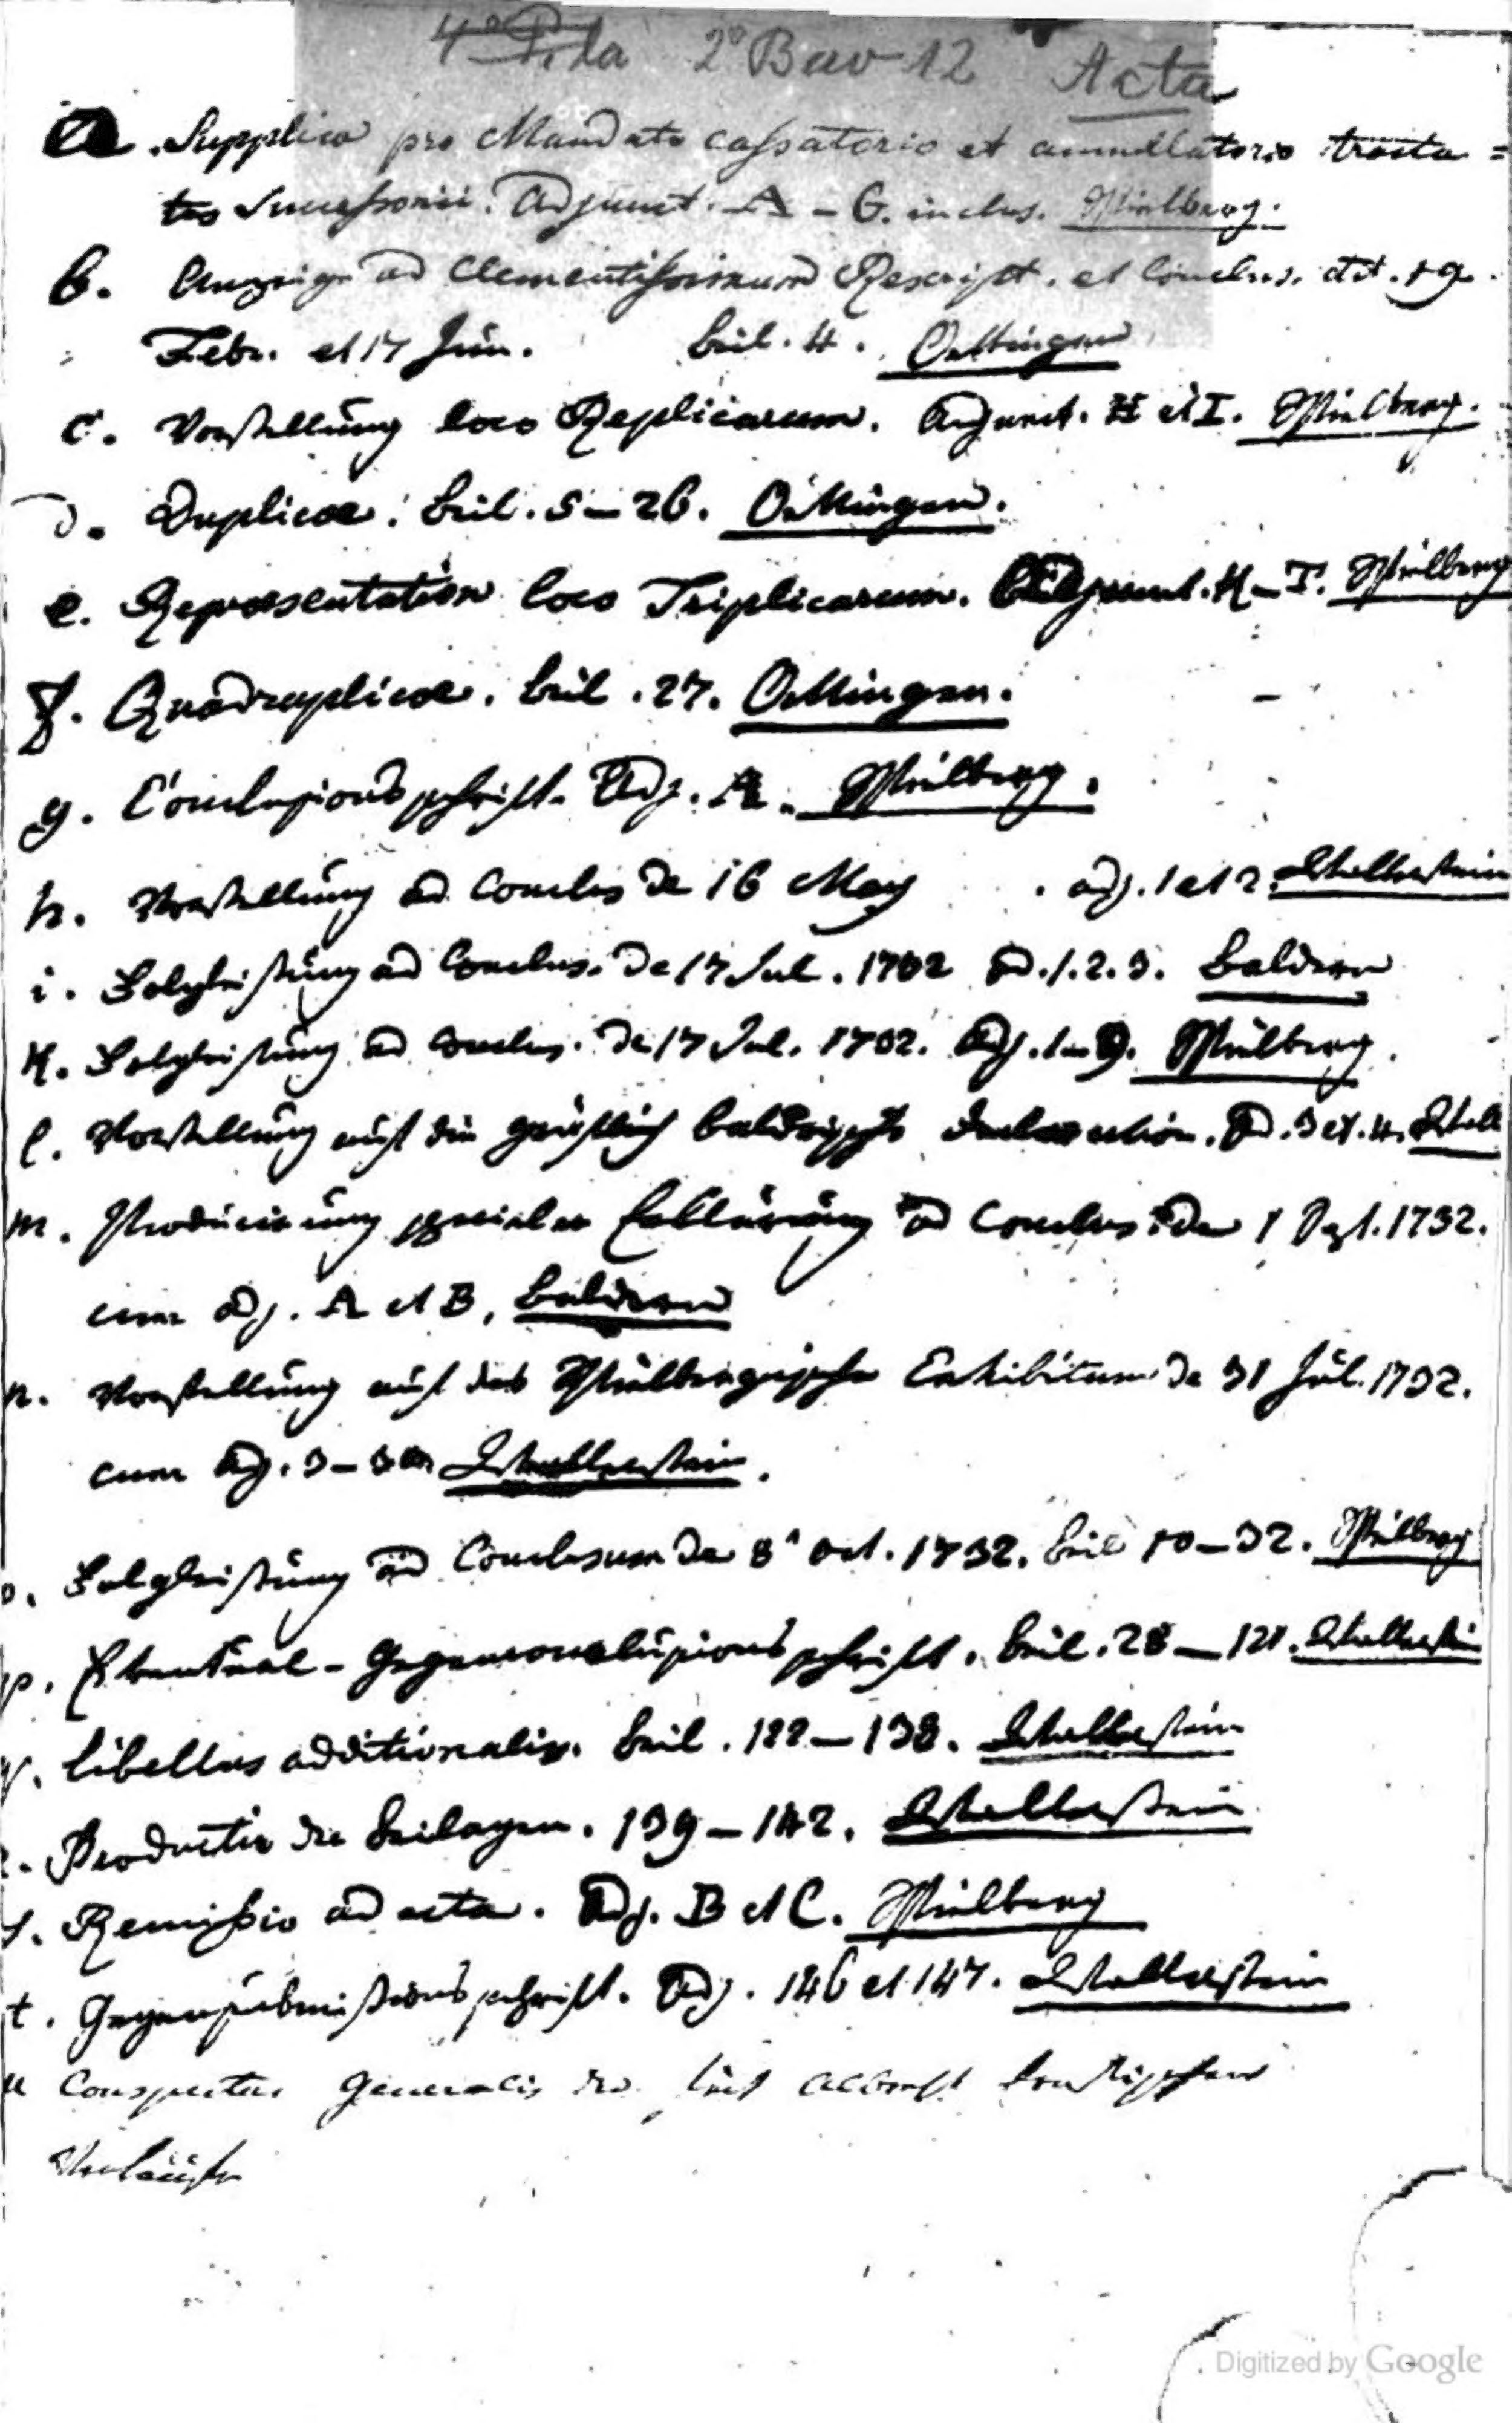 2° Bav 12 Acta
a. Supplica pro Mandato cassatorio et annullatorio tracta=
tus Successorii. Adjunct. A – G. inclus. Spielberg.
b. Anzeige ad Clementissimum Rescript. et Conclus. dat. 19.
Febr. et 17 Jun. beil. 4. Oettingen
c. Vorstellung loco Replicarum. Adjunct. H et I. Spielberg.
d. Duplicae. beil. 5–26. Oettingen.
e. Repraesentation loco Triplicarum. Adjunct. K–T. Spielberg
f. Quadruplicae. beil. 27. Oettingen.
g. Conclusionsschrift. Adj. A. Spielberg.
h. Vorstellung ad Conclus de 16 May adj. 1 et 2. Wallerstein
i. Folgleistung ad Conclus. de 17 Jul. 1732 ad. 1. 2. 3. Baldern
k. Folgleistung ad Conclus. de 17 Jul. 1732. Adj. 1–9. Spielberg.
l. Vorstellung auf die gräflich baldrische declaration. Ad. 3 et. 4. Wall
m. Producirung specialer Erklärung ad Conclus. de 1 Sept. 1732.
cum adj. A et B, Baldern
n. Vorstellung auf das Spielbergische Exhibitum de 31 Jul. 1732.
cum Adj. 3– Wallerstein.
o. Folgleistung ad Conclusum de 8 Oct. 1732. beil 10–32. Spielberg
p. Eventual-Gegenconclusionsschrift. beil. 28–121. Wallerstein
q. Libellus additionalis. beil. 122–138. Wallerstein
r. Productio der beilagen. 139–142. Wallerstein
s. Remissio ad acta. Adj. B et C. Spielberg
t. Gegensubmissionsschrift. Adj. 146 et 147. Wallerstein
u Conspectus generalis